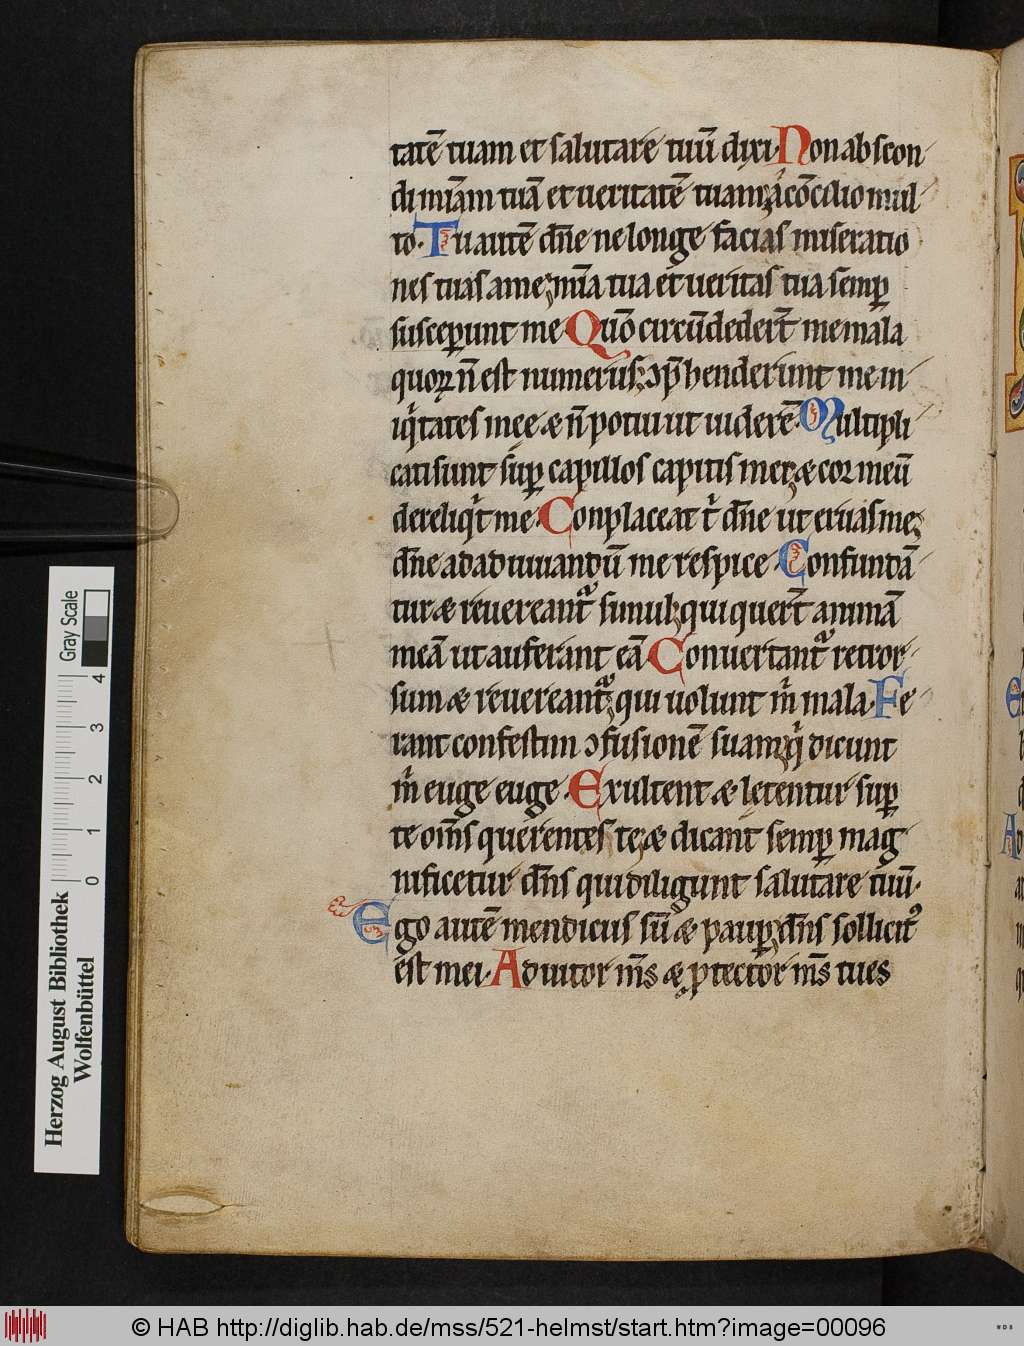 tatē tuam et salutare tuū dixi. Non abscon
di miam̄ tuā et ueritatē tuam; a ̄cōcilio mul
to. Tu autē dn̄e ne longe facias miseratio
nes tuas a me; mīa tua et ueritas tua semp̄
suscep̄unt me. Quō circūdedert̄ me mala
quoꝝ n̄ est numerus; ɔp̄henderunt me in
iq̇tates meę & n̄ potui ut uiderē. Multipli
cati sunt sup̄ capillos capitis mei; & cor meū
dereliq̇t me. Conplaceat t̄ dn̄e ut eruas me;
dn̄e ad adiuuandū me respice. Confundā
tur & reuereant᷑ simul; qui quert̄ animā
meā ut auferant eā. Conuertant᷑ retror
sum & reuereant᷑; qui uolunt m̄ mala. Fe
rant confestim ɔfusionē suam; q̇ dicunt
m̄ euge euge. Exultent & lętentur sup̄
te om̄s querentes te; & dicant semp̄ mag
nificetur dn̄s qui diligunt salutare tuū.
Ego autē mendicus sū & paup̄; dn̄s sollicitꝰ
est mei. Adiutor m̄s & ꝓtector m̄s tu es
Gray Scale
4
3
2
1
0
Herzog August Bibliothek
Wolfenbüttel
© HAB http://diglib.hab.de/mss/521-helmst/start.htm?image=00096